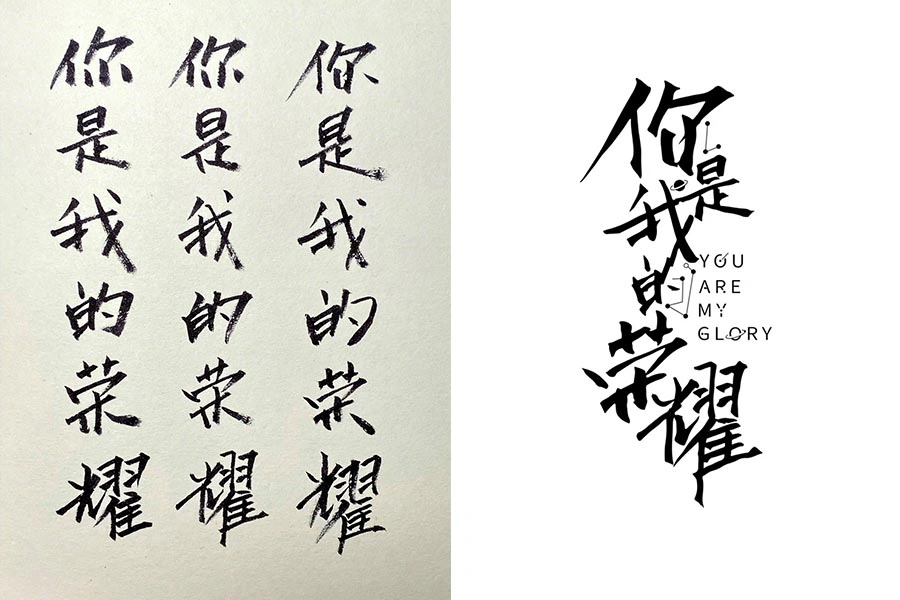 你是我的荣耀
你是我的荣耀
你是我的荣耀
你是我的荣耀
YOU
ARE
MY
GLORY